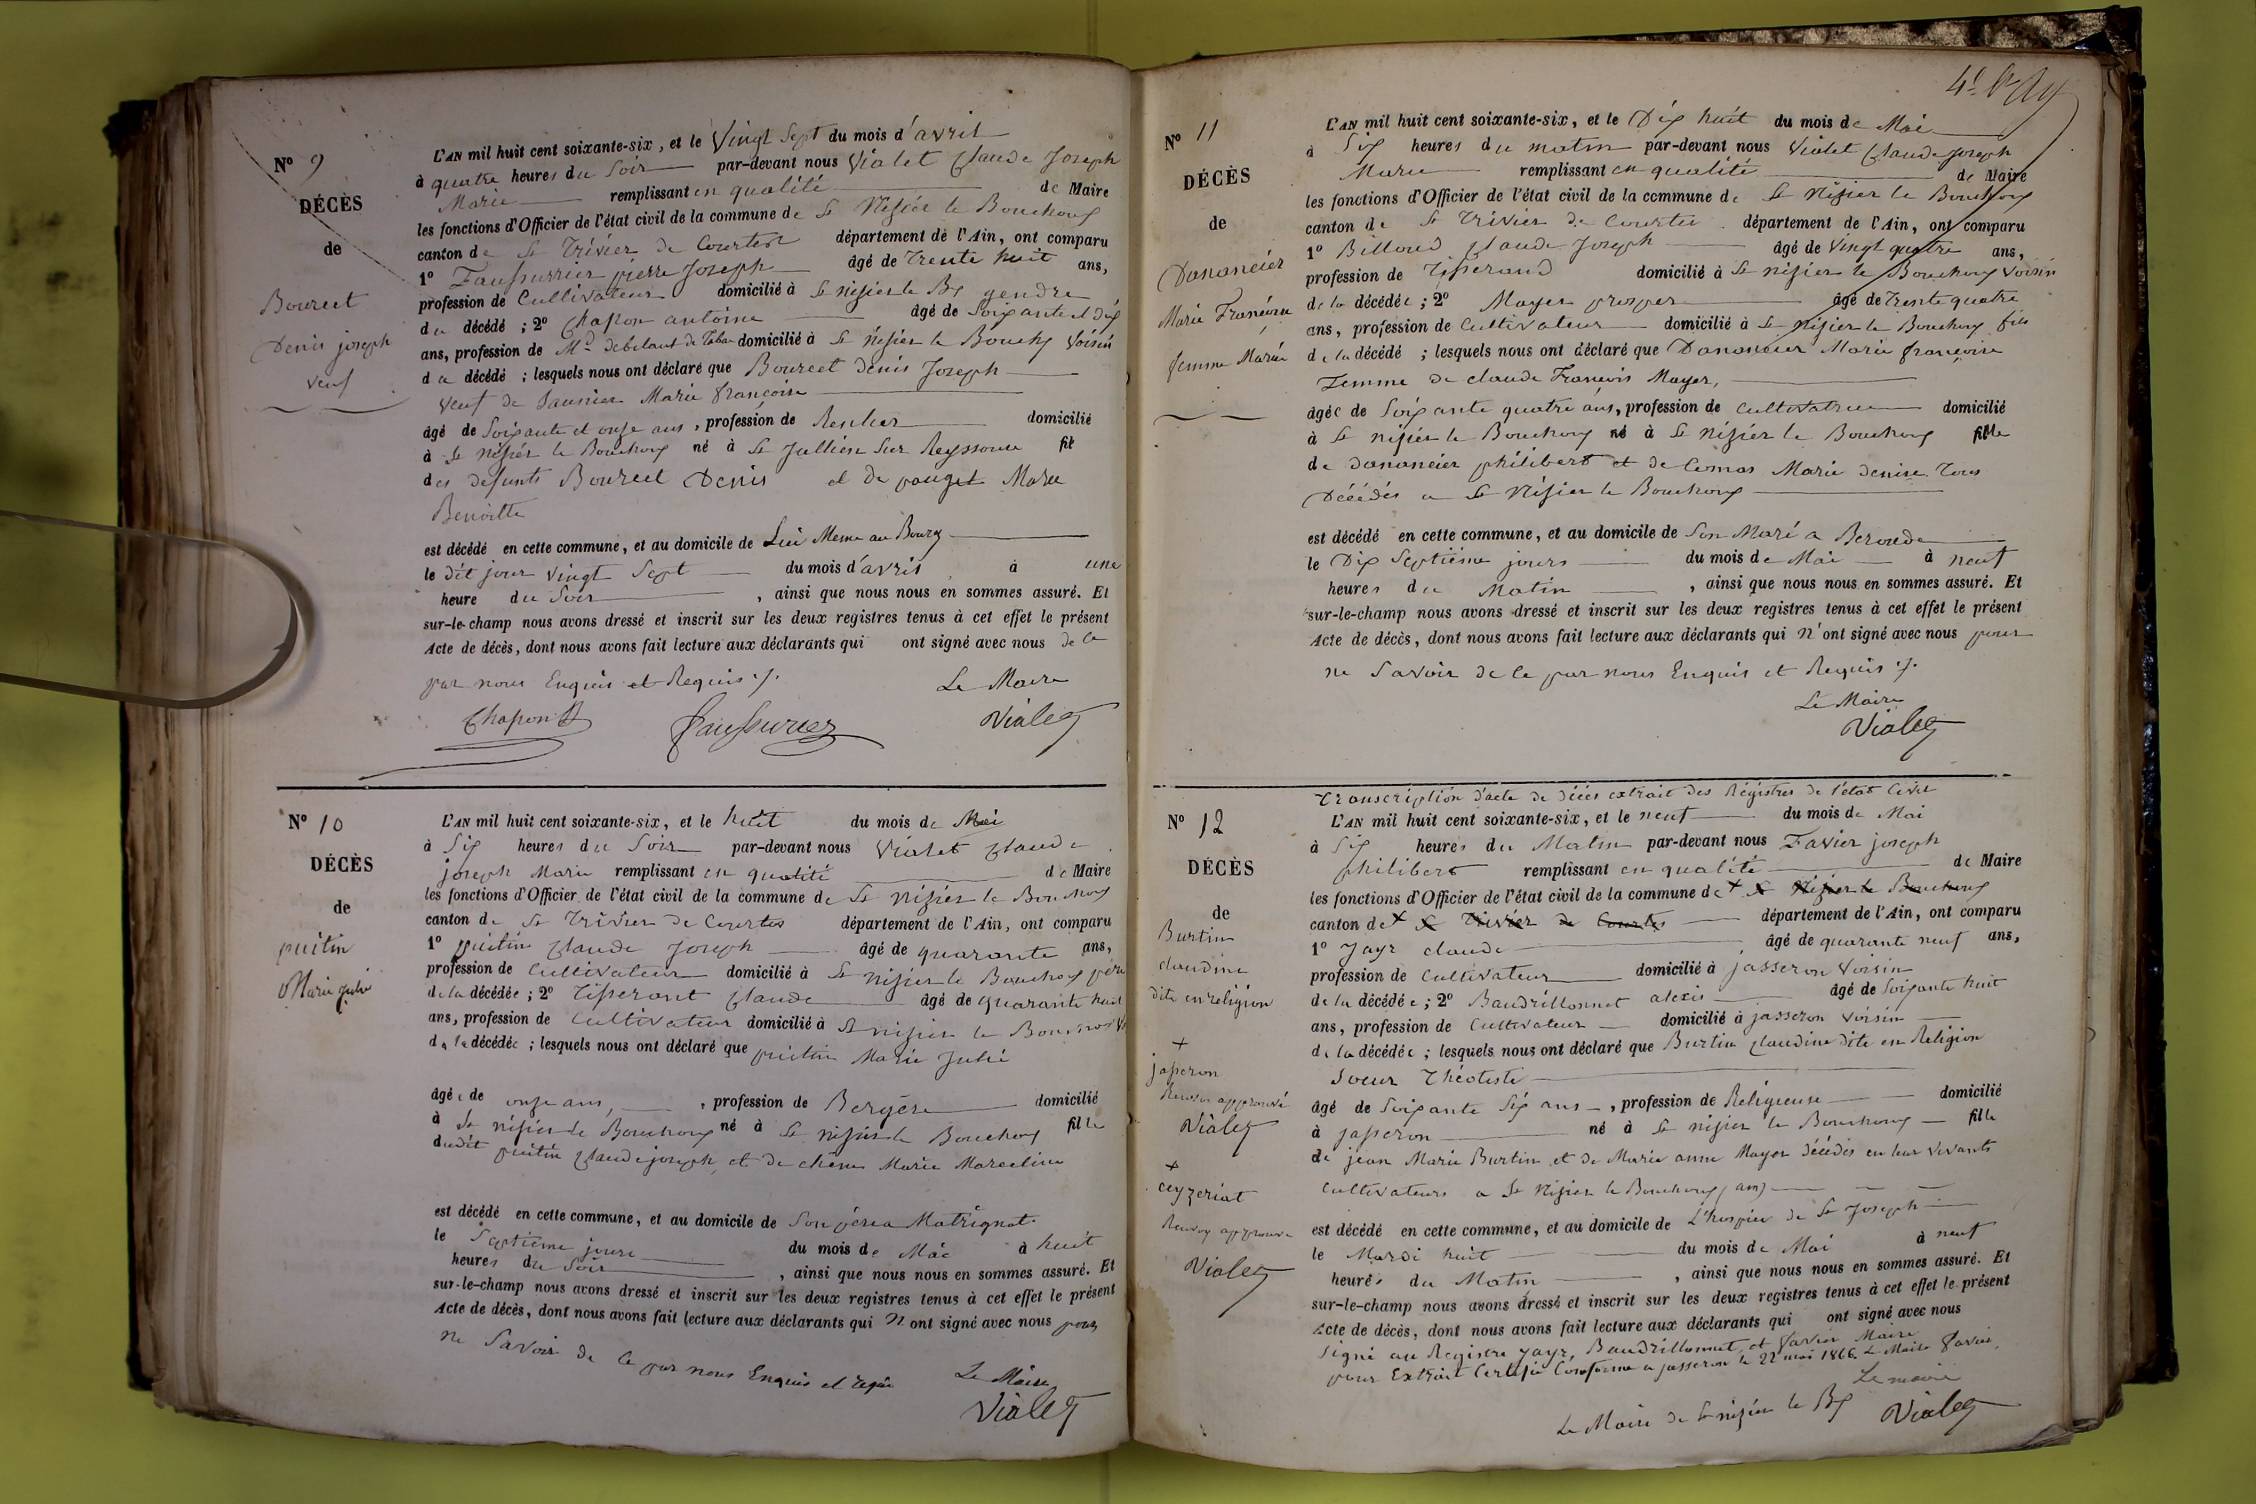 N° 9
DÉCÈS
de
Bourcet
Denis joseph
veuf
L'AN mil huit cent soixante-six, et le Vingt Sept du mois d'avril
à quatre heures du Soir par-devant nous Vialet Claude Joseph
Marie remplissant en qualité de Maire
les fonctions d'Officier de l'état civil de la commune de St Nizier le Bouchoux
canton de St Trivier de Courtes département de l'Ain, ont comparu
1° Faussurrier pierre Joseph âgé de Trente huit ans,
profession de Cultivateur domicilié à St Nizier le Bx gendre
du décédé ; 2° Chapon antoine âgé de Soixante et dix
ans, profession de Md débitant de Tabac domicilié à St Nizier le Bouchx Voisin
du décédé ; lesquels nous ont déclaré que Bourcet denis Joseph
veuf de Saunier Marie françoise
âgé de Soixante et onze ans, profession de Rentier domicilié
à St Nizier le Bouchoux né à St Jullien Sur Reyssouze fils
des defunts Bourcet Denis et de pouget Marie
Benoitte
est décédé en cette commune, et au domicile de Lui Meme au Bourg
le dit jour vingt Sept du mois d'avril à une
heure du Soir, ainsi que nous nous en sommes assuré. Et
sur-le-champ nous avons dressé et inscrit sur les deux registres tenus à cet effet le présent
Acte de décès, dont nous avons fait lecture aux déclarants qui ont signé avec nous de ce
par nous Enquis et Requis ./.
Le Maire
Chapon Faussurier Vialet
N° 10
DÉCÈS
de
puitin
Marie Julie
L'AN mil huit cent soixante-six, et le huit du mois de Mai
à Six heures du Soir par-devant nous Vialet Claude
joseph Marie remplissant en qualité de Maire
les fonctions d'Officier de l'état civil de la commune de St Nizier le Bouchoux
canton de St Trivier de Courtes département de l'Ain, ont comparu
1° puitin Claude Joseph âgé de quarante ans,
profession de Cultivateur domicilié à St Nizier le Bouchoux père
de la décédée ; 2° Tisserant Claude âgé de quarante huit
ans, profession de Cultivateur domicilié à St nizier le Bouchoux
de la décédée ; lesquels nous ont déclaré que puitin Marie Julie
âgée de onze ans, profession de Bergère domicilié
à St nizier le Bouchoux né à St nizier le Bouchoux fille
dudit puitin Claude joseph et de chêne Marie Marceline
est décédé en cette commune, et au domicile de Son père a Matrignat
le Septieme jours du mois de Mai à huit
heures du Soir, ainsi que nous nous en sommes assuré. Et
sur-le-champ nous avons dressé et inscrit sur les deux registres tenus à cet effet le présent
Acte de décès, dont nous avons fait lecture aux déclarants qui N'ont signé avec nous pour
ne Savoir de ce par nous Enquis et requis
Le Maire
Vialet
N° 11
DÉCÈS
de
Dananeier
Marie Françoise
femme Mariée
L'AN mil huit cent soixante-six, et le Dix huit du mois de Mai
à Six heures du matin par-devant nous Vialet Claude Joseph
Marie remplissant en qualité de Maire
les fonctions d'Officier de l'état civil de la commune de St Nizier le Bouchoux
canton de St Trivier de Courtes département de l'Ain, ont comparu
1° Billoud Claude Joseph âgé de Vingt quatre ans,
profession de Tisserand domicilié à St nizier le Bouchoux Voisin
de la décédée ; 2° Mayer prosper âgé de Trente quatre
ans, profession de Cultivateur domicilié à St nizier le Bouchoux fils
de la décédé ; lesquels nous ont déclaré que Dananeier Marie françoise
Femme de claude François Mayer,
âgée de Soixante quatre ans, profession de Cultivatrice domicilié
à St nizier le Bouchoux né à St Nizier le Bouchoux fille
de dananeier philibert et de Comas Marie denise Tous
Décédés a St Nizier le Bouchoux
est décédé en cette commune, et au domicile de Son Mari a Beroude
le Dix Septième jours du mois de Mai à neuf
heures du Matin, ainsi que nous nous en sommes assuré. Et
sur-le-champ nous avons dressé et inscrit sur les deux registres tenus à cet effet le présent
Acte de décès, dont nous avons fait lecture aux déclarants qui N'ont signé avec nous pour
ne Savoir de ce par nous Enquis et Requis ./.
Le Maire
Vialet
N° 12
DÉCÈS
de
Burtin
claudine
dite en religion
+
jasseron
Renvoi approuvé
Vialet
+
ceyzeriat
Renvoy approuvé
Vialet
Transcription d'acte de décès extrait des Régistres de l'état Civil
L'AN mil huit cent soixante-six, et le neuf du mois de Mai
à Six heures du Matin par-devant nous Favier joseph
philibert remplissant en qualité de Maire
les fonctions d'Officier de l'état civil de la commune de + St Nizier le Bouchoux
canton de + St Trivier de Courtes département de l'Ain, ont comparu
1° Jayr claude âgé de quarante neuf ans,
profession de Cultivateur domicilié à jasseron Voisin
de la décédée ; 2° Baudrillonnet alexis âgé de Soixante huit
ans, profession de Cultivateur domicilié à jasseron Voisin
de la décédée ; lesquels nous ont déclaré que Burtin Claudine dite en Religion
Soeur Théotiste
âgé de Soixante Six ans, profession de Réligieuse domicilié
à jasseron né à St nizier le Bouchoux fille
de jean Marie Burtin et de Marie anne Mayer décédés en leur vivants
Cultivateurs a St Nizier le Bouchoux (ain)
est décédé en cette commune, et au domicile de L'hospice de St Joseph
le Mardi huit du mois de Mai à neuf
heures du Matin, ainsi que nous nous en sommes assuré. Et
sur-le-champ nous avons dressé et inscrit sur les deux registres tenus à cet effet le présent
Acte de décès, dont nous avons fait lecture aux déclarants qui ont signé avec nous
Signé au Registre Jayr, Baudrillonnet, et Favier Maire
pour Extrait Certifié Conforme a jasseron le 22 mai 1866. Le Maire Favier,
Le maire
Le Maire de St nizier le Bx Vialet